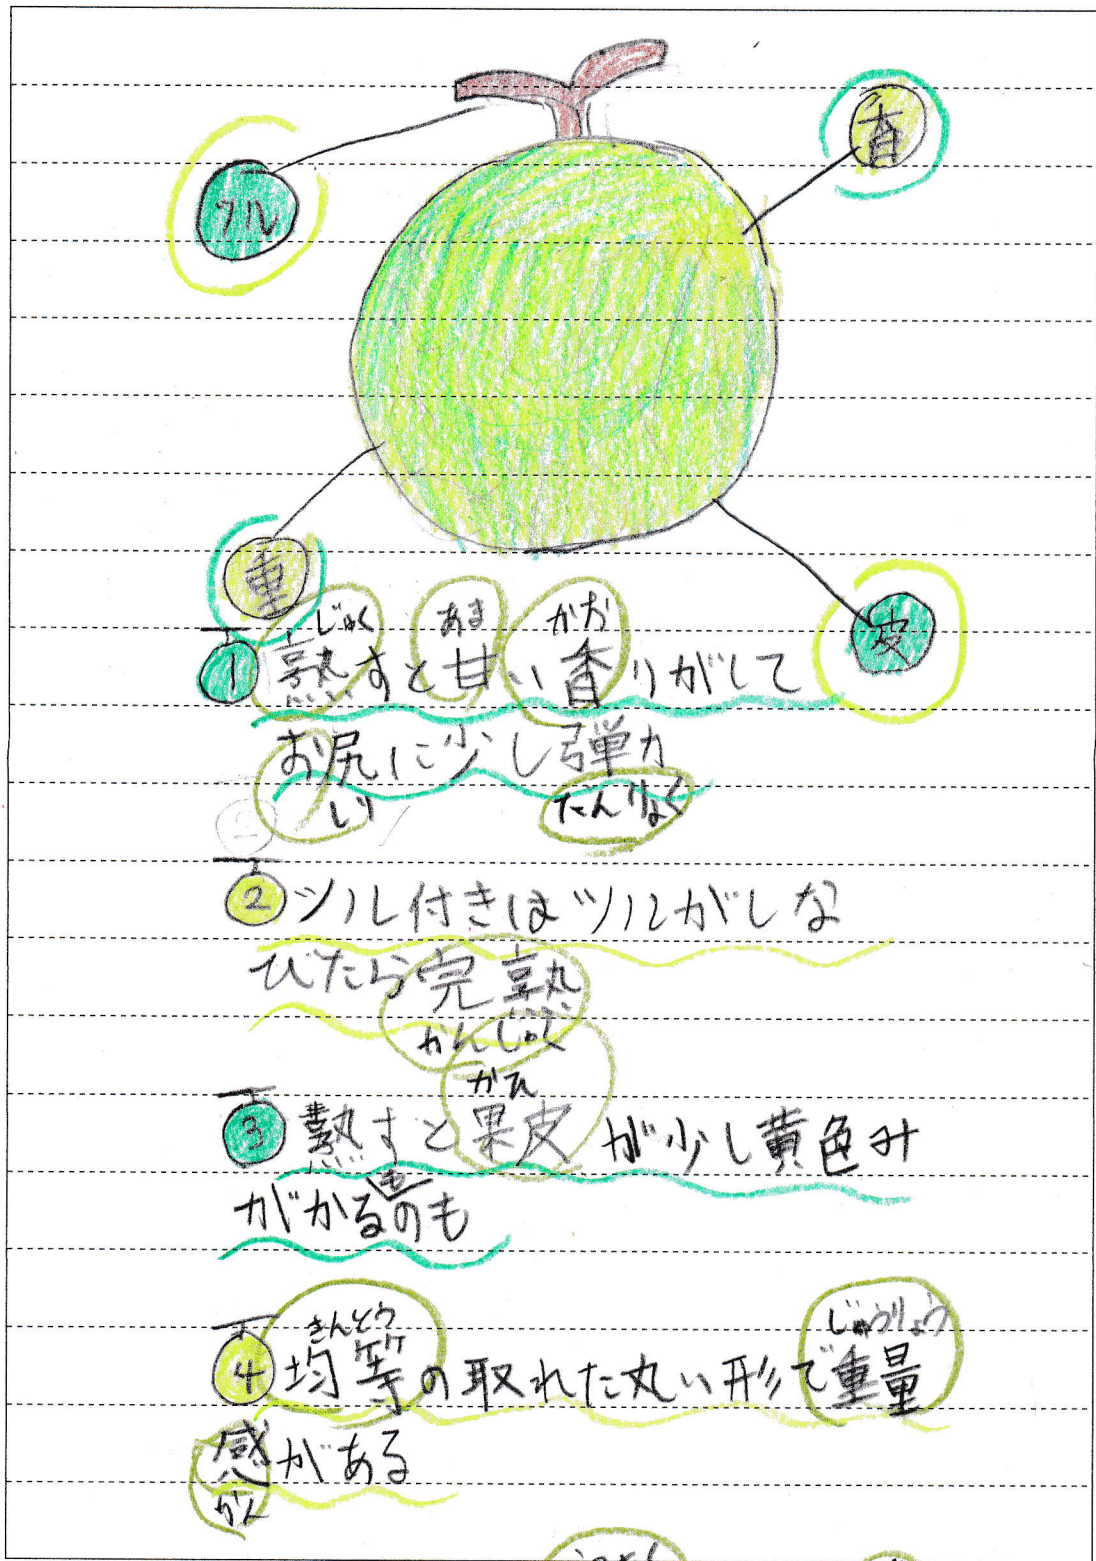 香
ツル
重
皮
じゅく あま かお
① 熟すと甘い香りがして
お尻に少し弾力
しり だんりょく
② ツル付きはツルがしな
びたら完熟
かんじゅく
かひ
③ 熟すと果皮が少し黄色み
がかるのも
も
きんとう じゅうりょう
④ 均等の取れた丸い形で重量
感がある
かん